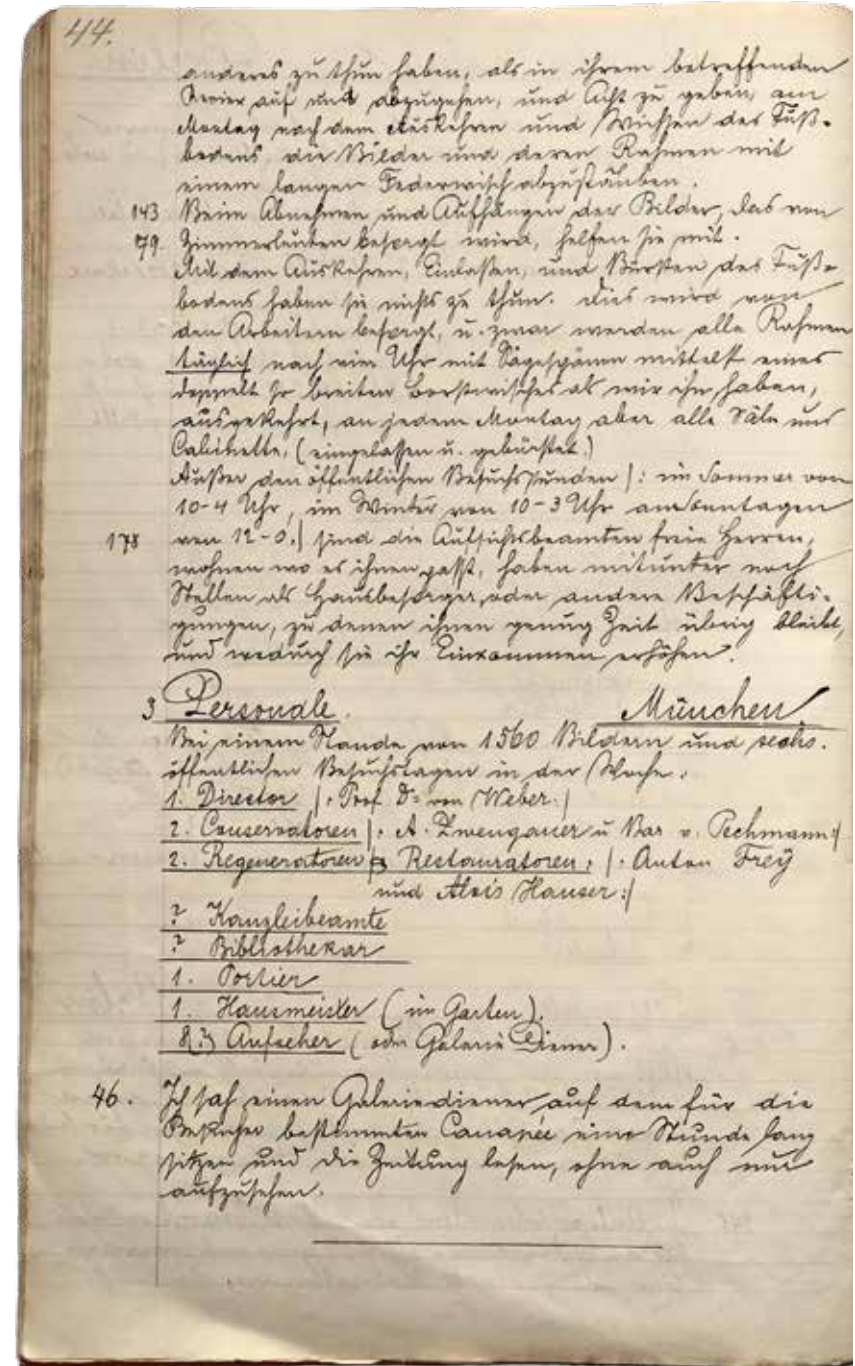 44.
anderes zu thun haben, als in ihrem betreffenden
Revier auf und abzugehen, und Acht zu geben, am
Montag nach dem Auskehren und Wichsen des Fuß-
bodens, die Bilder und deren Rahmen mit
einem langen Federwisch abzustauben.
143 Beim Abnehmen und Aufhängen der Bilder, das von
79. Zimmerleuten besorgt wird, helfen sie mit.
Mit dem Auskehren, Einlaßen, und Bürsten des Fuß-
bodens haben sie nichts zu thun. Dies wird von
den Arbeitern besorgt, u. zwar werden alle
täglich nach vier Uhr mit Sägespänen mittelst eines
doppelt so breiten Borstwisches als wir ihn haben,
ausgekehrt, an jedem Montag aber alle Säle und
Cabinette, (eingelassen u. gebürstet.)
Außer den öffentlichen Besuchsstunden |: im Sommer von
10-4 Uhr, im Winter von 10-3 Uhr an Sonntagen
178 von 12-0.| sind die Aufsichtsbeamten freie Herren,
wohnen wo es ihnen passt, haben mitunter noch
Stellen als Hausbesorger, oder andere Beschäfti-
gungen, zu denen ihnen genug Zeit übrig bleibt,
und wodurch sie ihr Einkommen erhöhen.
3 Personale. München!
Bei einem Stande von 1560 Bildern und sechs
öffentlichen Besuchstagen in der Woche:
1. Director |: Prof. Dr von Weber:|
2. Conservatoren |: A. Zwengauer u Bar v. Pechmann:|
2. Regeneratoren Restauratoren, |: Anton Freÿ
und Alois Hauser:|
? Kanzleibeamte
? Bibliothekar
1. Portier
1. Hausmeister (im Garten).
8(?) Aufseher (oder Galerie Diener).
46. Ich sah einen Galeriediener auf dem für die
Besucher bestimmten Canapée eine Stunde lang
sitzen und die Zeitung lesen, ohne auch nur
aufzusehen.